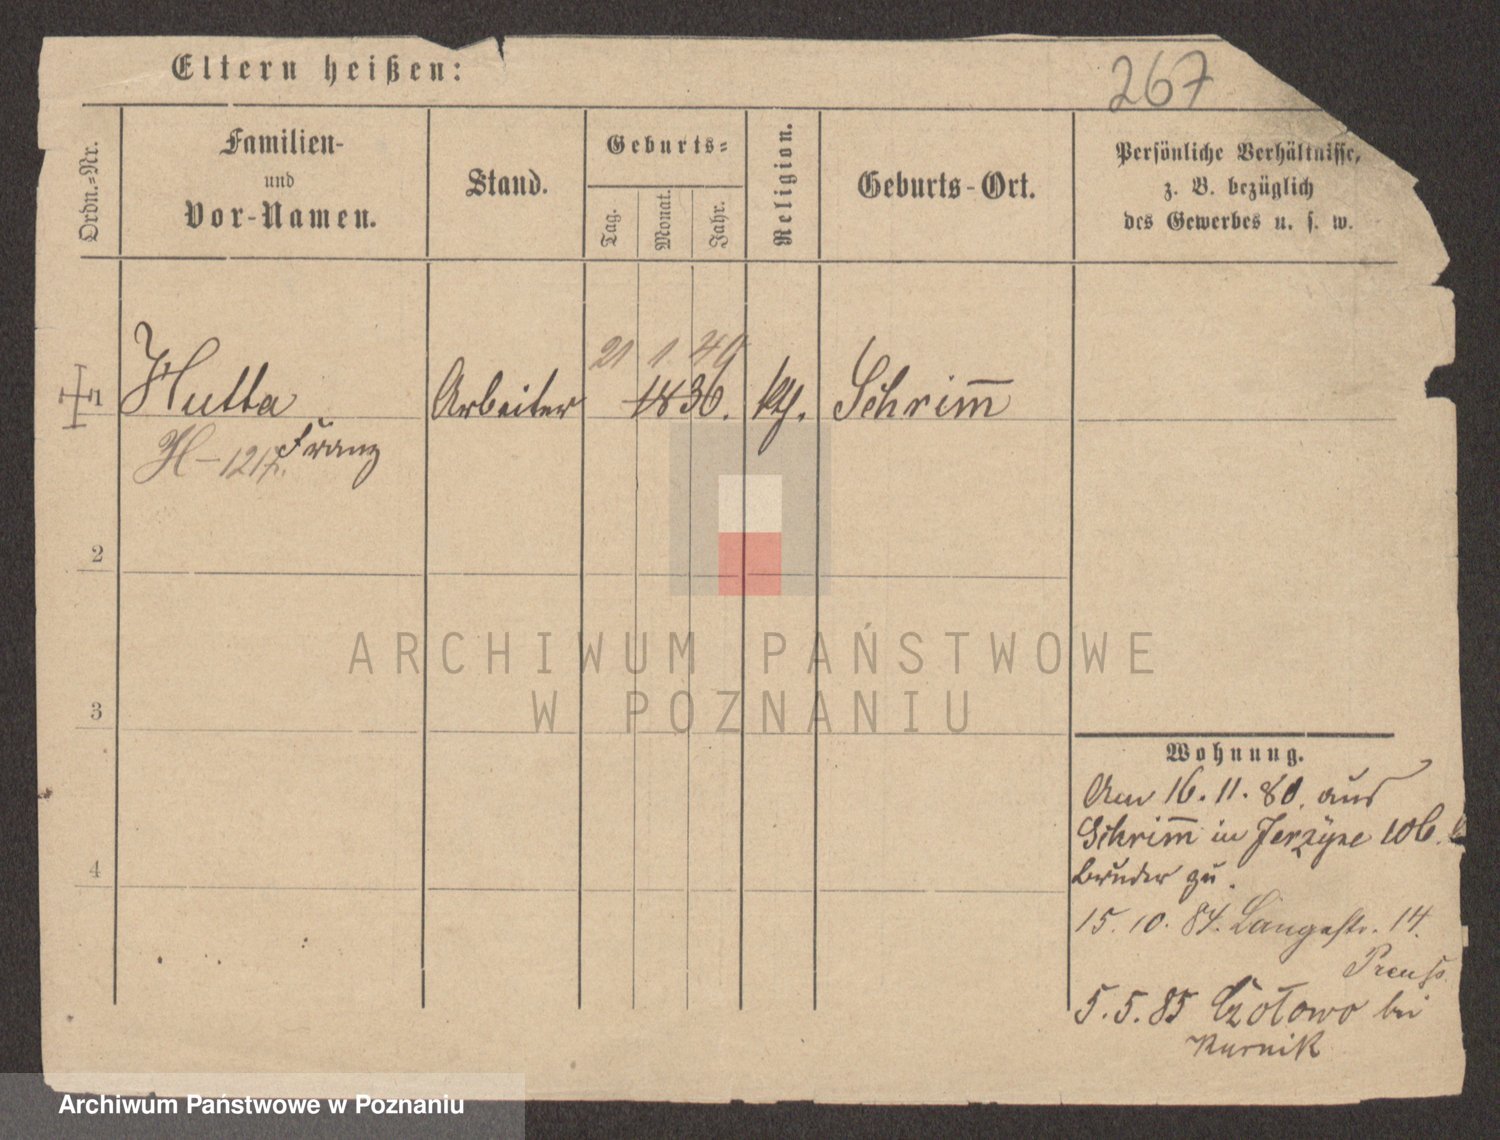 267
Eltern heißen:
Ordn.-Nr.
Familien-
und
Vor-Namen.
Stand.
Geburts-
Tag.
Monat.
Jahr.
Religion.
Geburts-Ort.
Persönliche Verhältnisse,
z. B. bezüglich
des Gewerbes u. s. w.
21 1 49
1 Hutta Arbeiter 1836. kth. Schrim̅
Franz
H-1217.
2
3
4
ARCHIWUM PAŃSTWOWE
W POZNANIU
Wohnung.
Am 16.11.80. aus
Schrim̅ in Jerzyce 106.
Bruder zu.
15.10.84. Langestr. 14.
Preuß
5.5.85 Czołowo bei
Kurnik
Archiwum Państwowe w Poznaniu